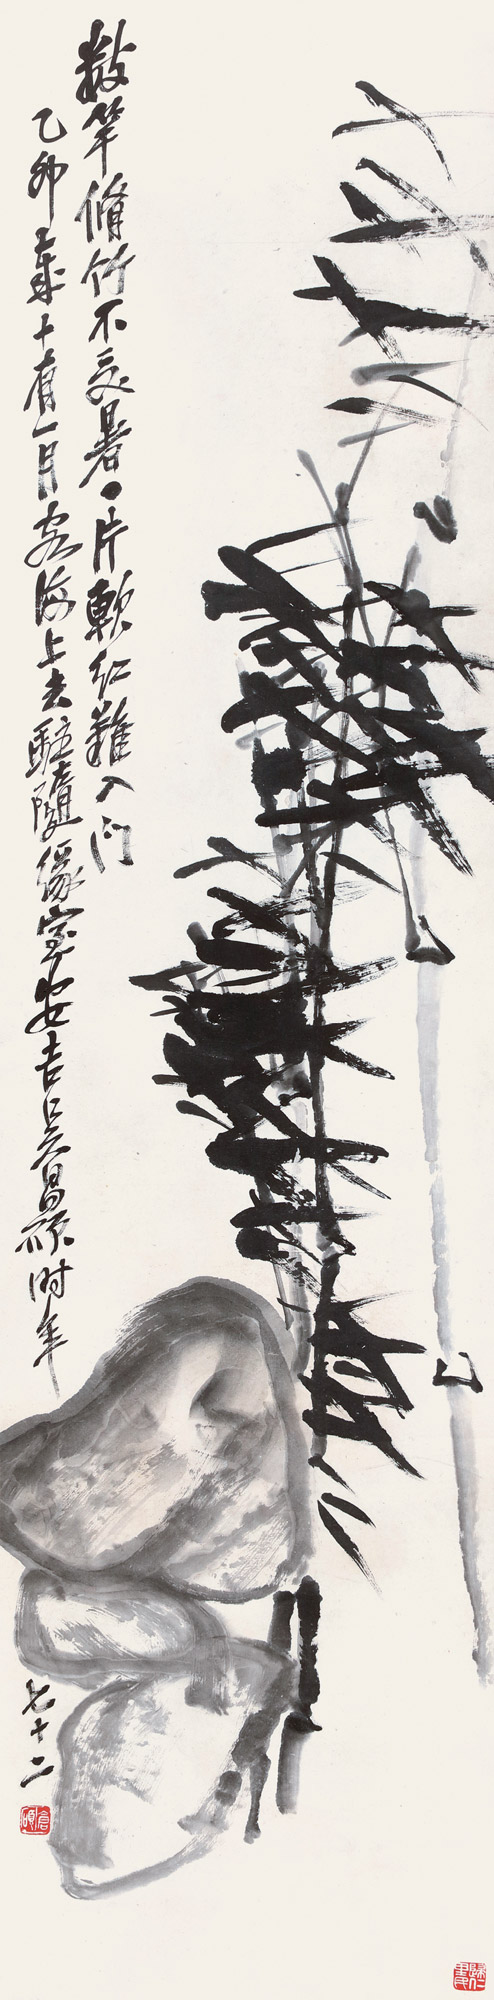 數竿脩竹不受暑一片軟紅難入門
乙卯歲十有一月客海上去駐隨緣室安吉吳昌碩時年
七十二
倉碩
歸仁里民